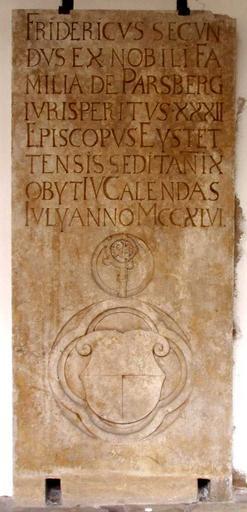 FRIDERICVS SECVN
DVS EX NOBILI FA
MILIA DE PARSBERG
IVRISPERITVS XXXII
EPISCOPVS EYSTET
TENSIS SEDIT AN IX
OBYT IV CALENDAS
IVLY ANNO MCCXLVI.